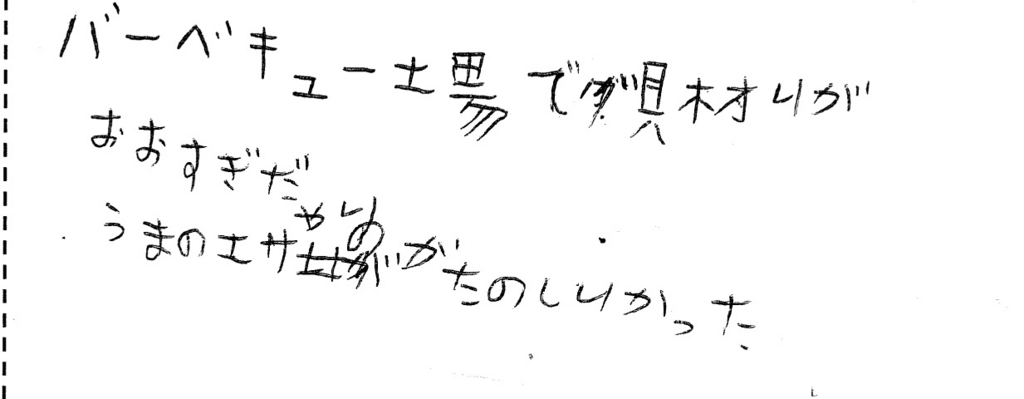 バーベキュー土場で具材りが
おおすぎだ
うまのエサやりががたのしりかった